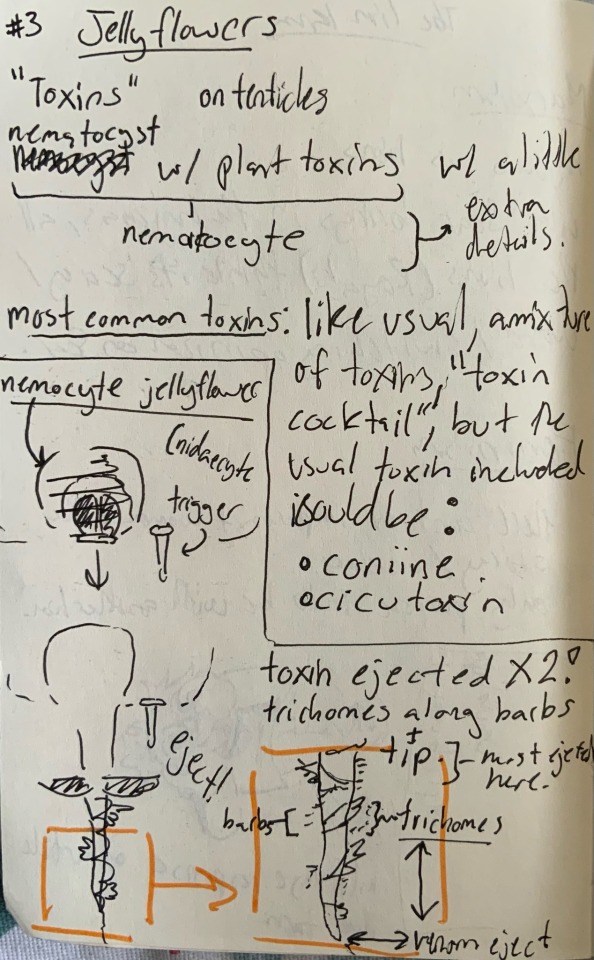 #3 Jellyflowers
"Toxins" on tenticles
nematocyst
w/ plant toxins w/ a little
extra
details.
nematocyte
most common toxins: like usual, a mixture
of toxins, "toxin
cocktail", but the
usual toxin included
would be:
• coniine.
• cicutoxin
nemocyte jellyflower
Cnidaecyte
trigger
eject!
toxin ejected X2:
trichomes along barbs
+ tip. - most ejected
here.
barbs
trichomes
venom eject